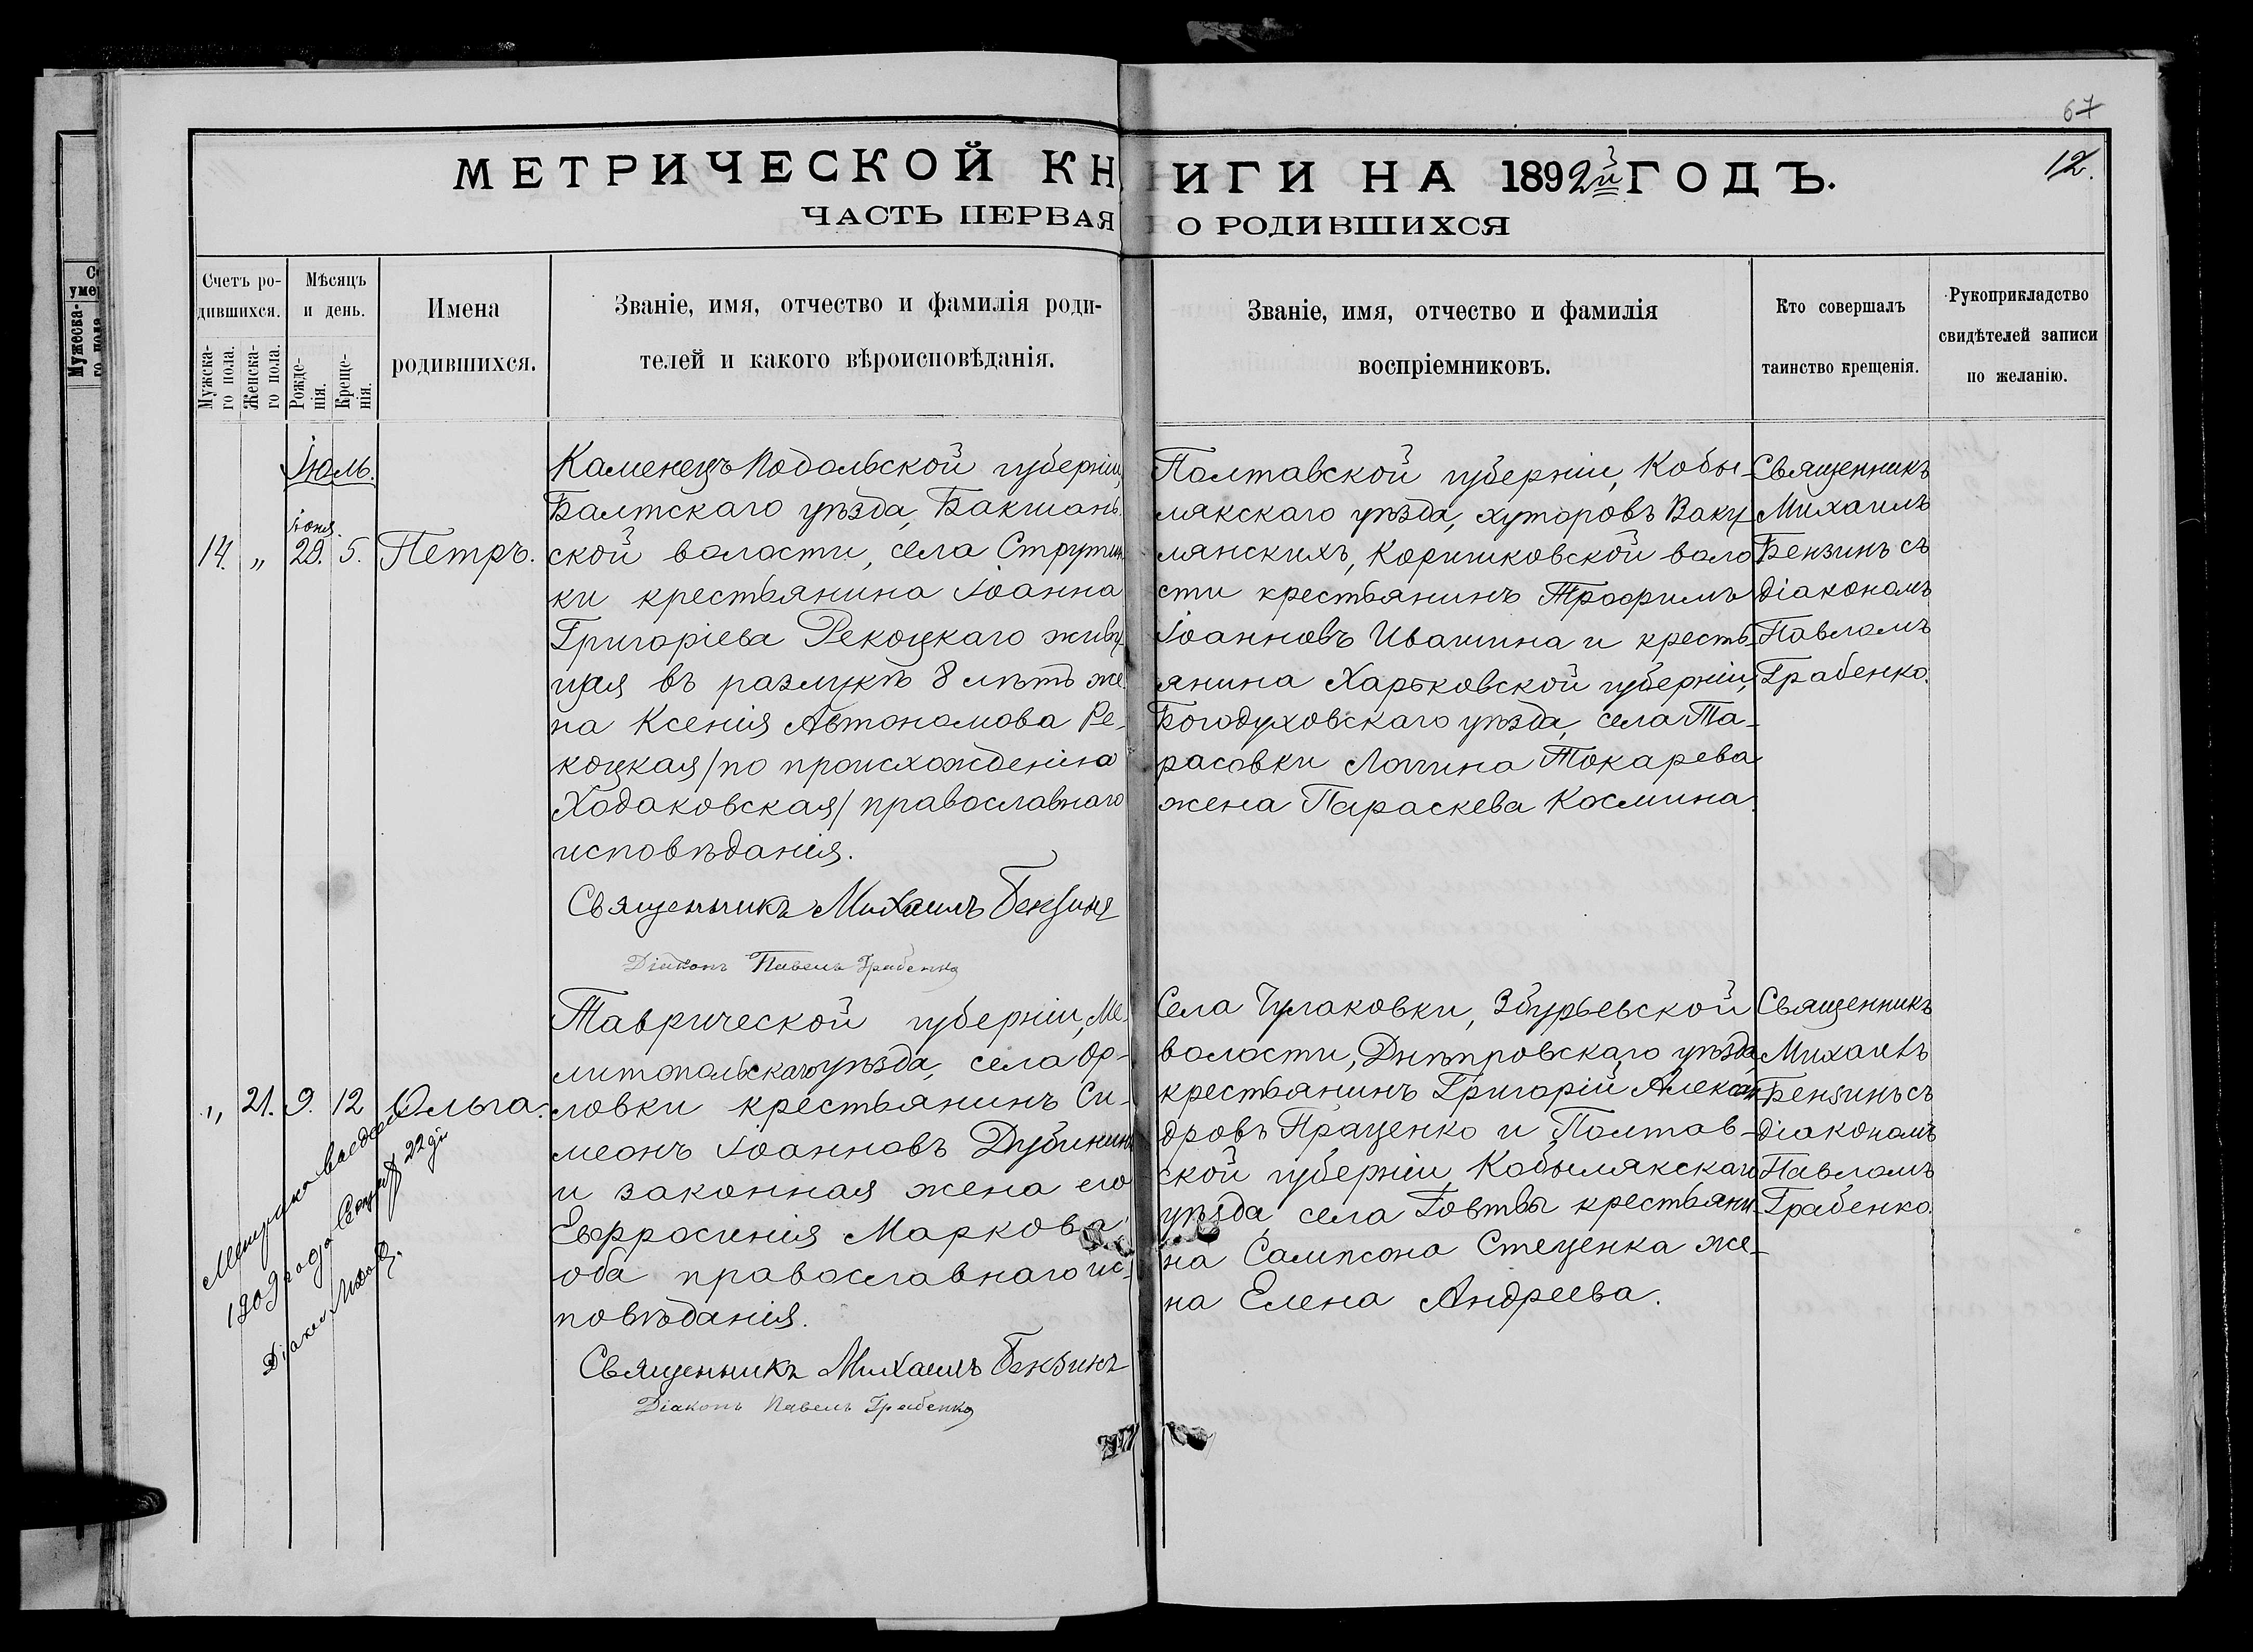 67
12.
МЕТРИЧЕСКОЙ КНИГИ НА 1892й ГОДЪ.
ЧАСТЬ ПЕРВАЯ О РОДИВШИХСЯ
Счетъ ро-
дившихся.
Мужска-
го пола.
Женска-
го пола.
Мѣсяцъ
и день.
Рожде-
нія.
Креще-
нія.
Имена
родившихся.
Званіе, имя, отчество и фамилія роди-
телей и какого вѣроисповѣданія.
Званіе, имя, отчество и фамилія
воспріемниковъ.
Кто совершалъ
таинство крещенія.
Рукоприкладство
свидѣтелей записи
по желанію.
Іюль.
Іюня
14. „ 29. 5. Петръ.
Каменецъ Подольской губерніи,
Балтскаго уѣзда, Бакшан-
ской волости, села
ки крестьянина Іоанна
Григоріева Рекоцкаго живу-
щая въ разлукѣ 8 лѣтъ же-
на Ксенія Автономова Ре-
коцкая /по происхожденію
Ходаковская/ православнаго
исповѣданія.
Священникъ Михаилъ Бензинъ
Діаконъ Павелъ Грабенко
Полтавской губерніи, Кобы-
лякскаго уѣзда, хуторовъ Ваку-
ленскихъ, воло
сти крестьянинъ Трофимъ
Іоанновъ Ивашина и кресть-
янина Харьковской губерніи,
Богодуховскаго уѣзда, села Та-
расовки Логина Токарева
жена Параскева Космина.
Священникъ
Михаилъ
Бензинъ съ
діакономъ
Павломъ
Грабенко.
„ 21. 9. 12 Ольга.
1909 года 22 дн
Діаконъ
Таврической губерніи, Ме-
литопольскаго уѣзда, села Ор-
ловки крестьянинъ Си-
меонъ Іоанновъ Дубининъ
и законная жена его
Евфросинія Маркова,
оба православнаго ис-
повѣданія.
Священникъ Михаилъ Бензинъ
Діаконъ Павелъ Грабенко
Села Чулаковки, Збурьевской
волости, Днѣпровскаго уѣзда,
крестьянинъ Григорій Алексан
дровъ Проценко и Полтав-
ской губерніи, Кобылякскаго
уѣзда, села Говтвы крестьяни-
на Сампсона Стеценка же-
на Елена Андреева.
Священникъ
Михаилъ
Бензинъ съ
діакономъ
Павломъ
Грабенко.